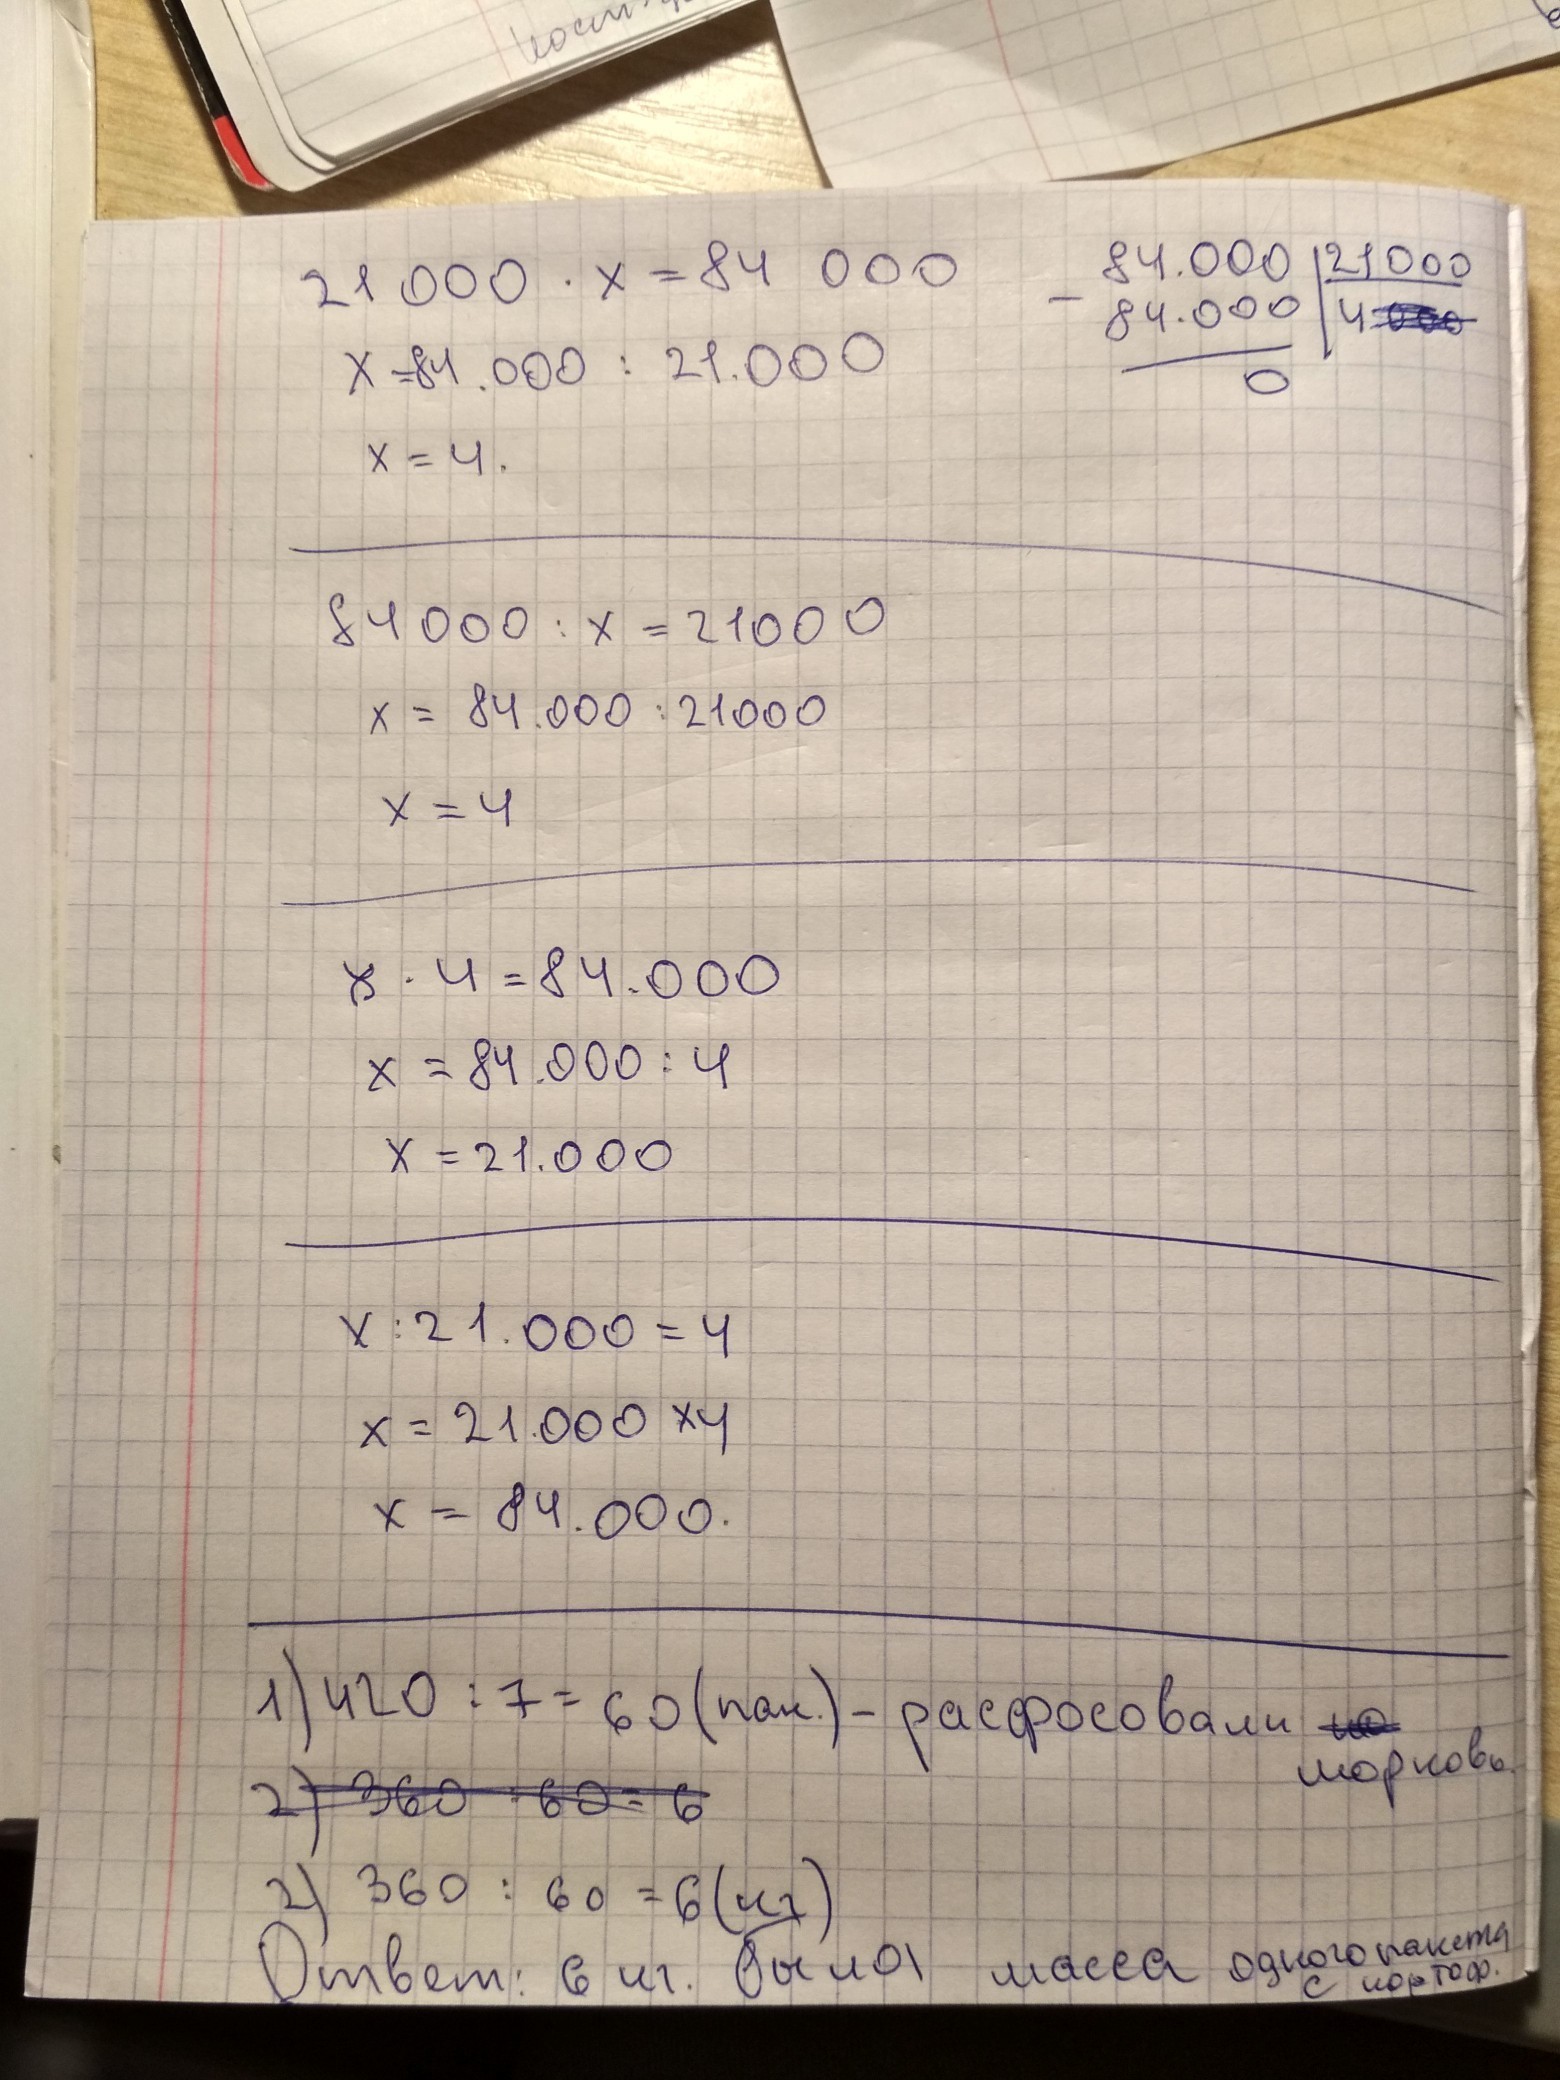 21 000 · x = 84 000
x = 84.000 : 21.000
x = 4.
84.000 | 21000
- 84.000 | 4
0
84 000 : x = 21000
x = 84.000 : 21000
x = 4
x · 4 = 84.000
x = 84.000 : 4
x = 21.000
x : 21.000 = 4
x = 21.000 × 4
x = 84.000.
1) 420 : 7 = 60 (пак.) - расфосовали
морковь.
2) 360 : 60 = 6
2) 360 : 60 = 6 (кг)
Ответ: 6 кг. была масса одного пакета
с картоф.